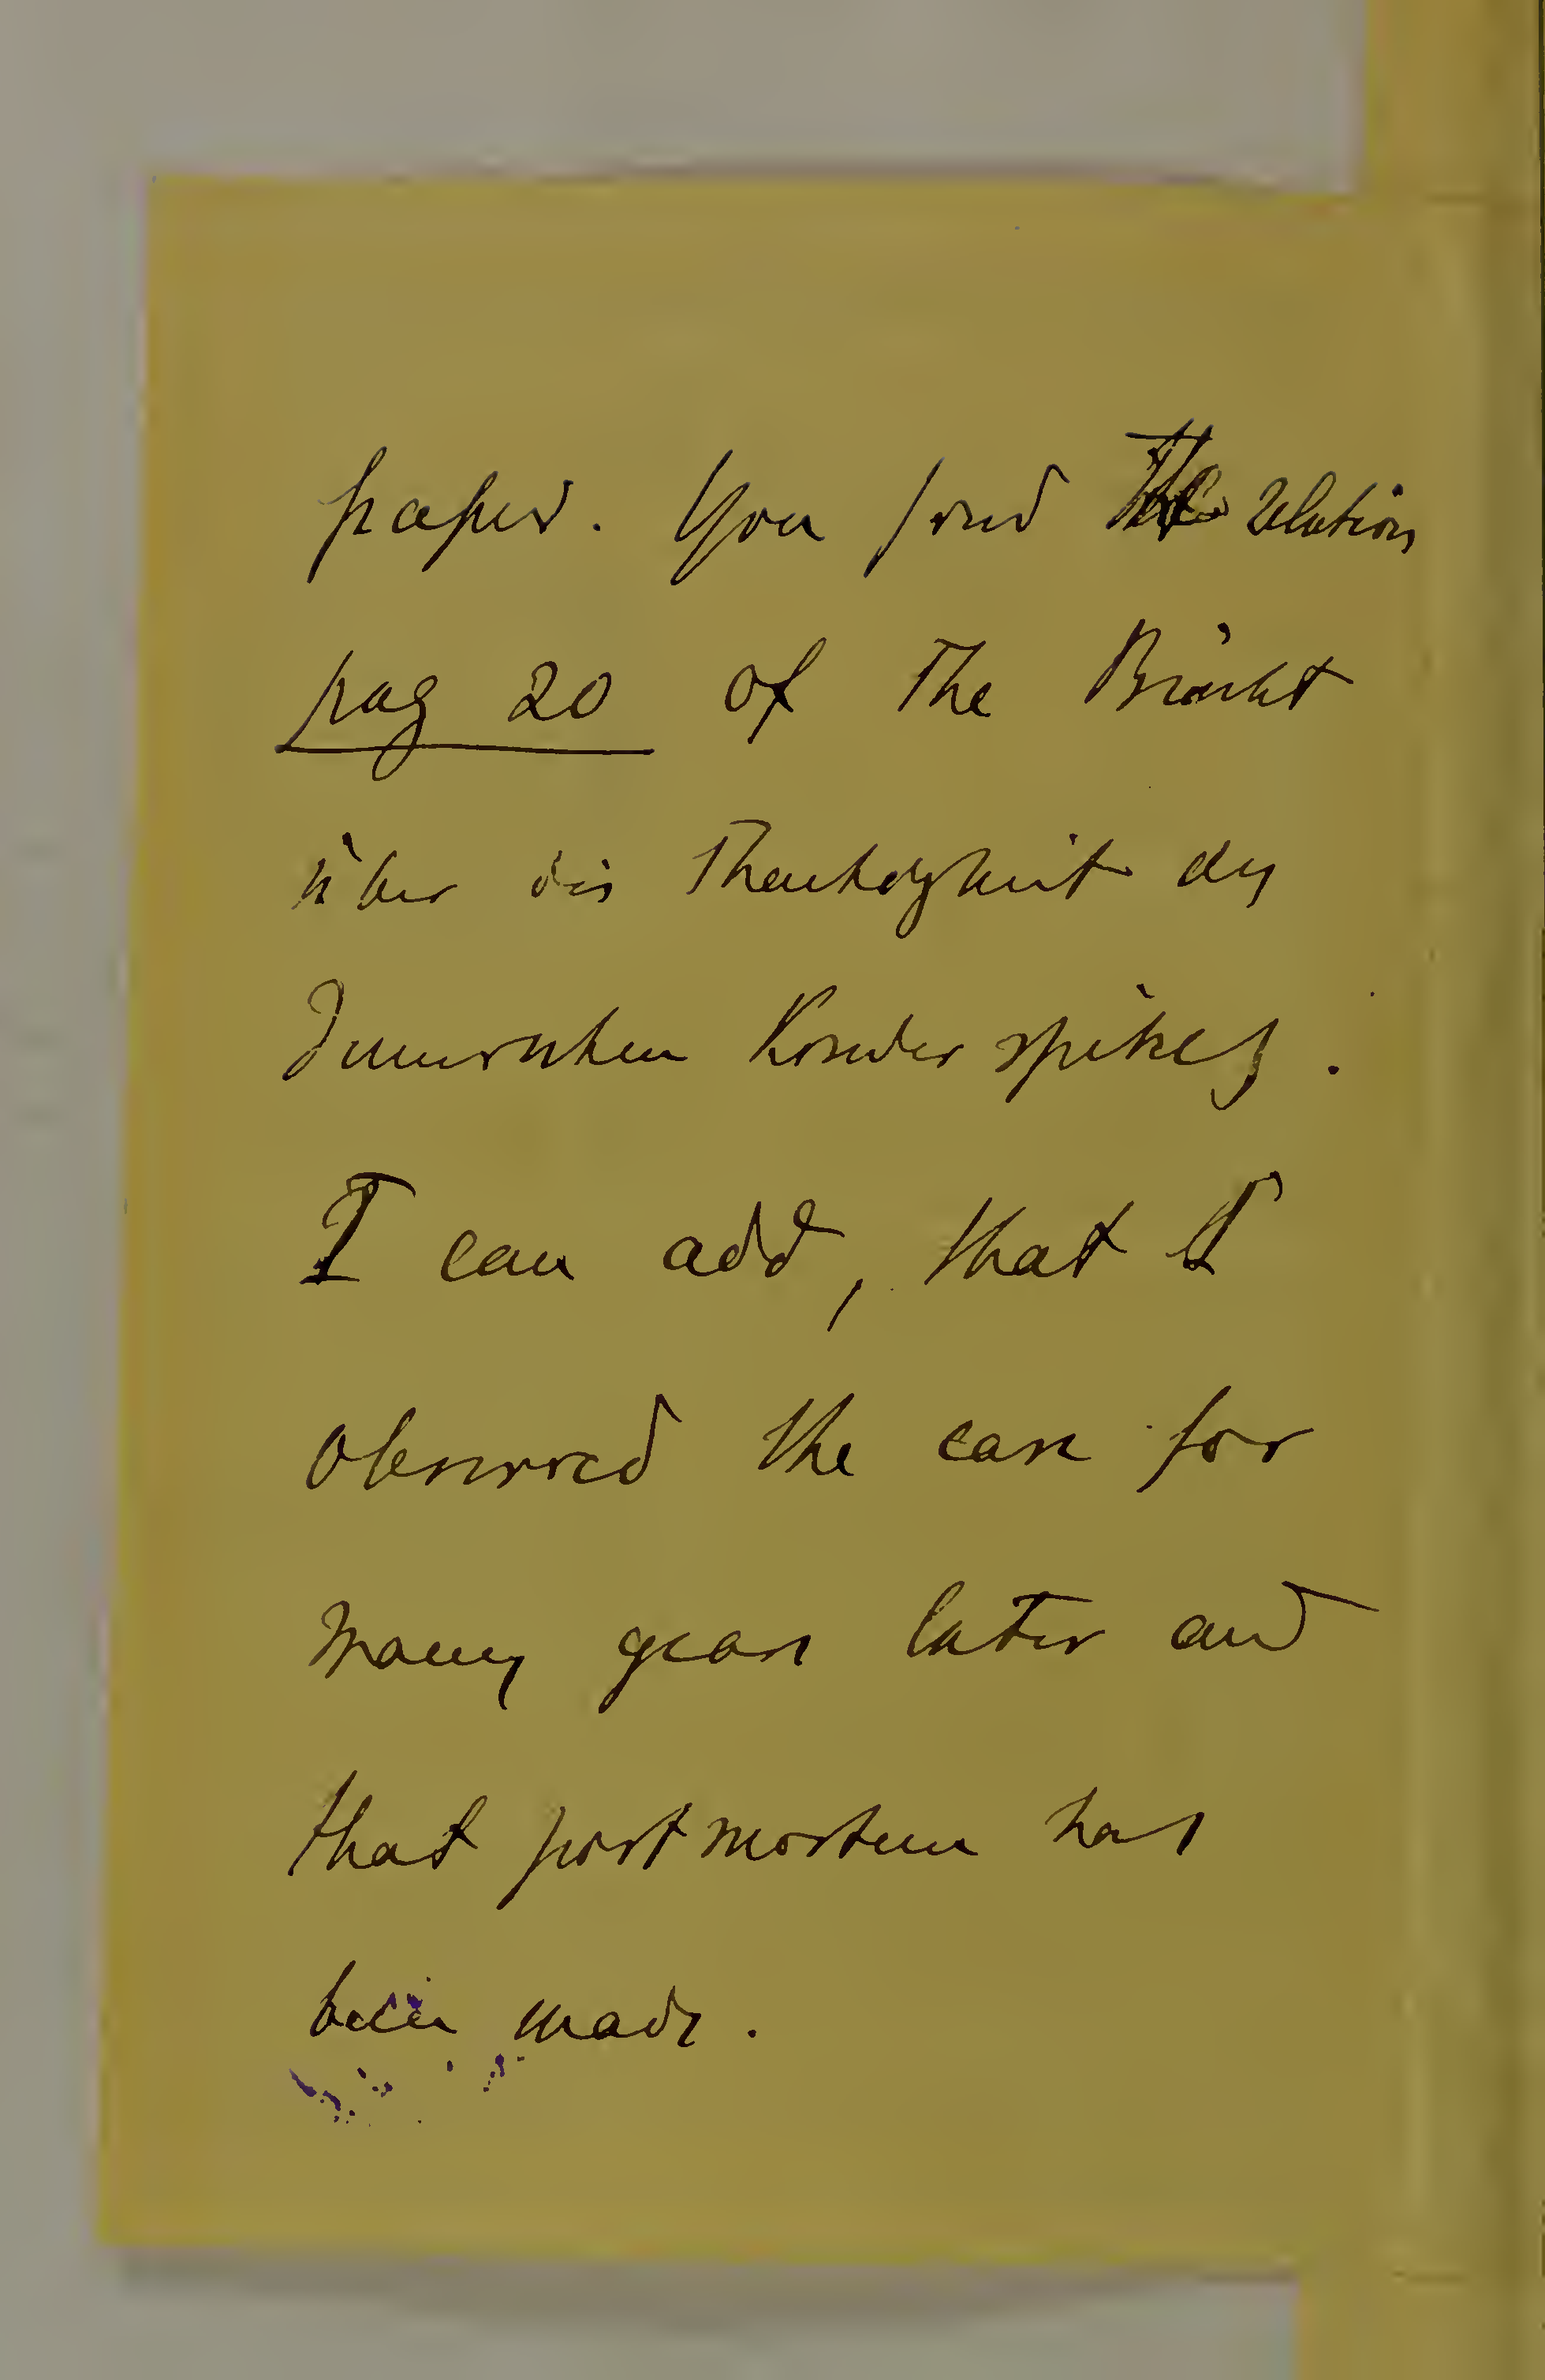 paper. You find the relation
pag 20 of the Bericht
über die Thaetigkeit des
Jennerschen Kinderspitals.
I can add, that I
observed the case for
many years later and
that post mortem has
been made.